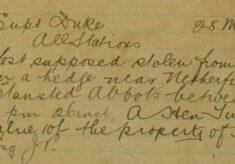 Supt Duke 28 M
All Stations
ost supposed stolen from
a hedge near Netherf
tansted Abbots betwe
pm 26 inst, A Hen Tu
alue of the property of S